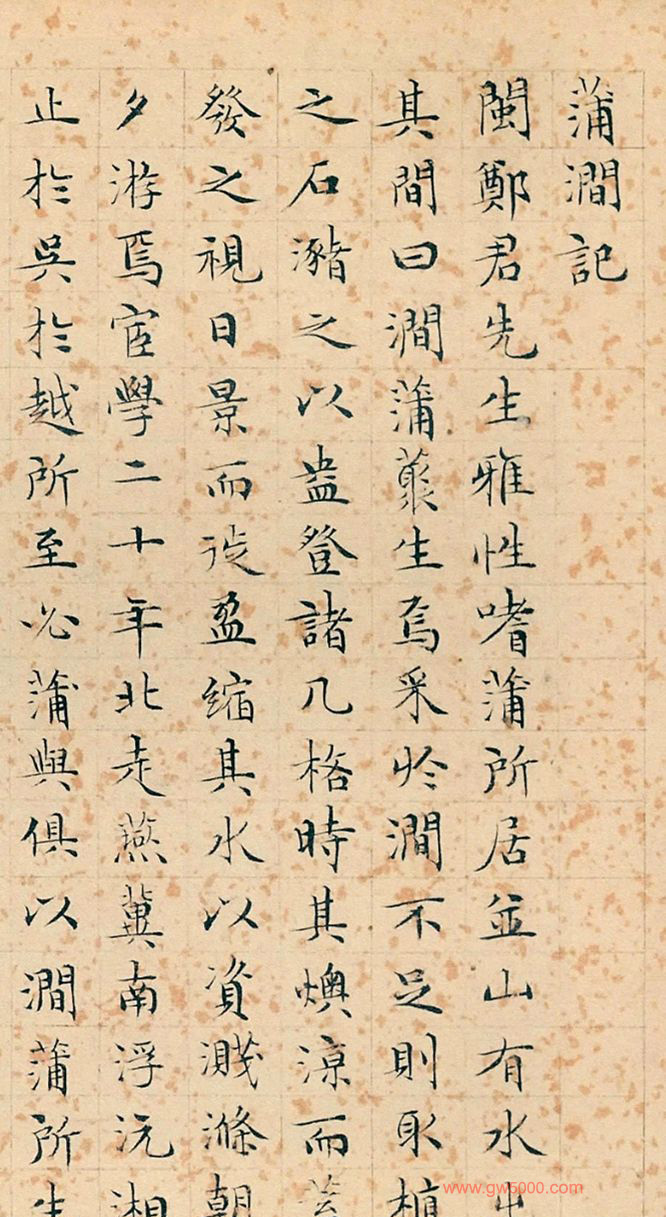 蒲澗記
閩鄭君先生雅性嗜蒲所居並山有水出
其間曰澗蒲叢生焉采於澗不足則取植
之石瀦之以盎登諸几格時其燠涼而
發之視日景而徙盈縮其水以資濺滌朝
夕游焉宦學二十年北走燕冀南浮沅湘
止於吳於越所至必蒲與俱以澗蒲所生
www.gw5000.com